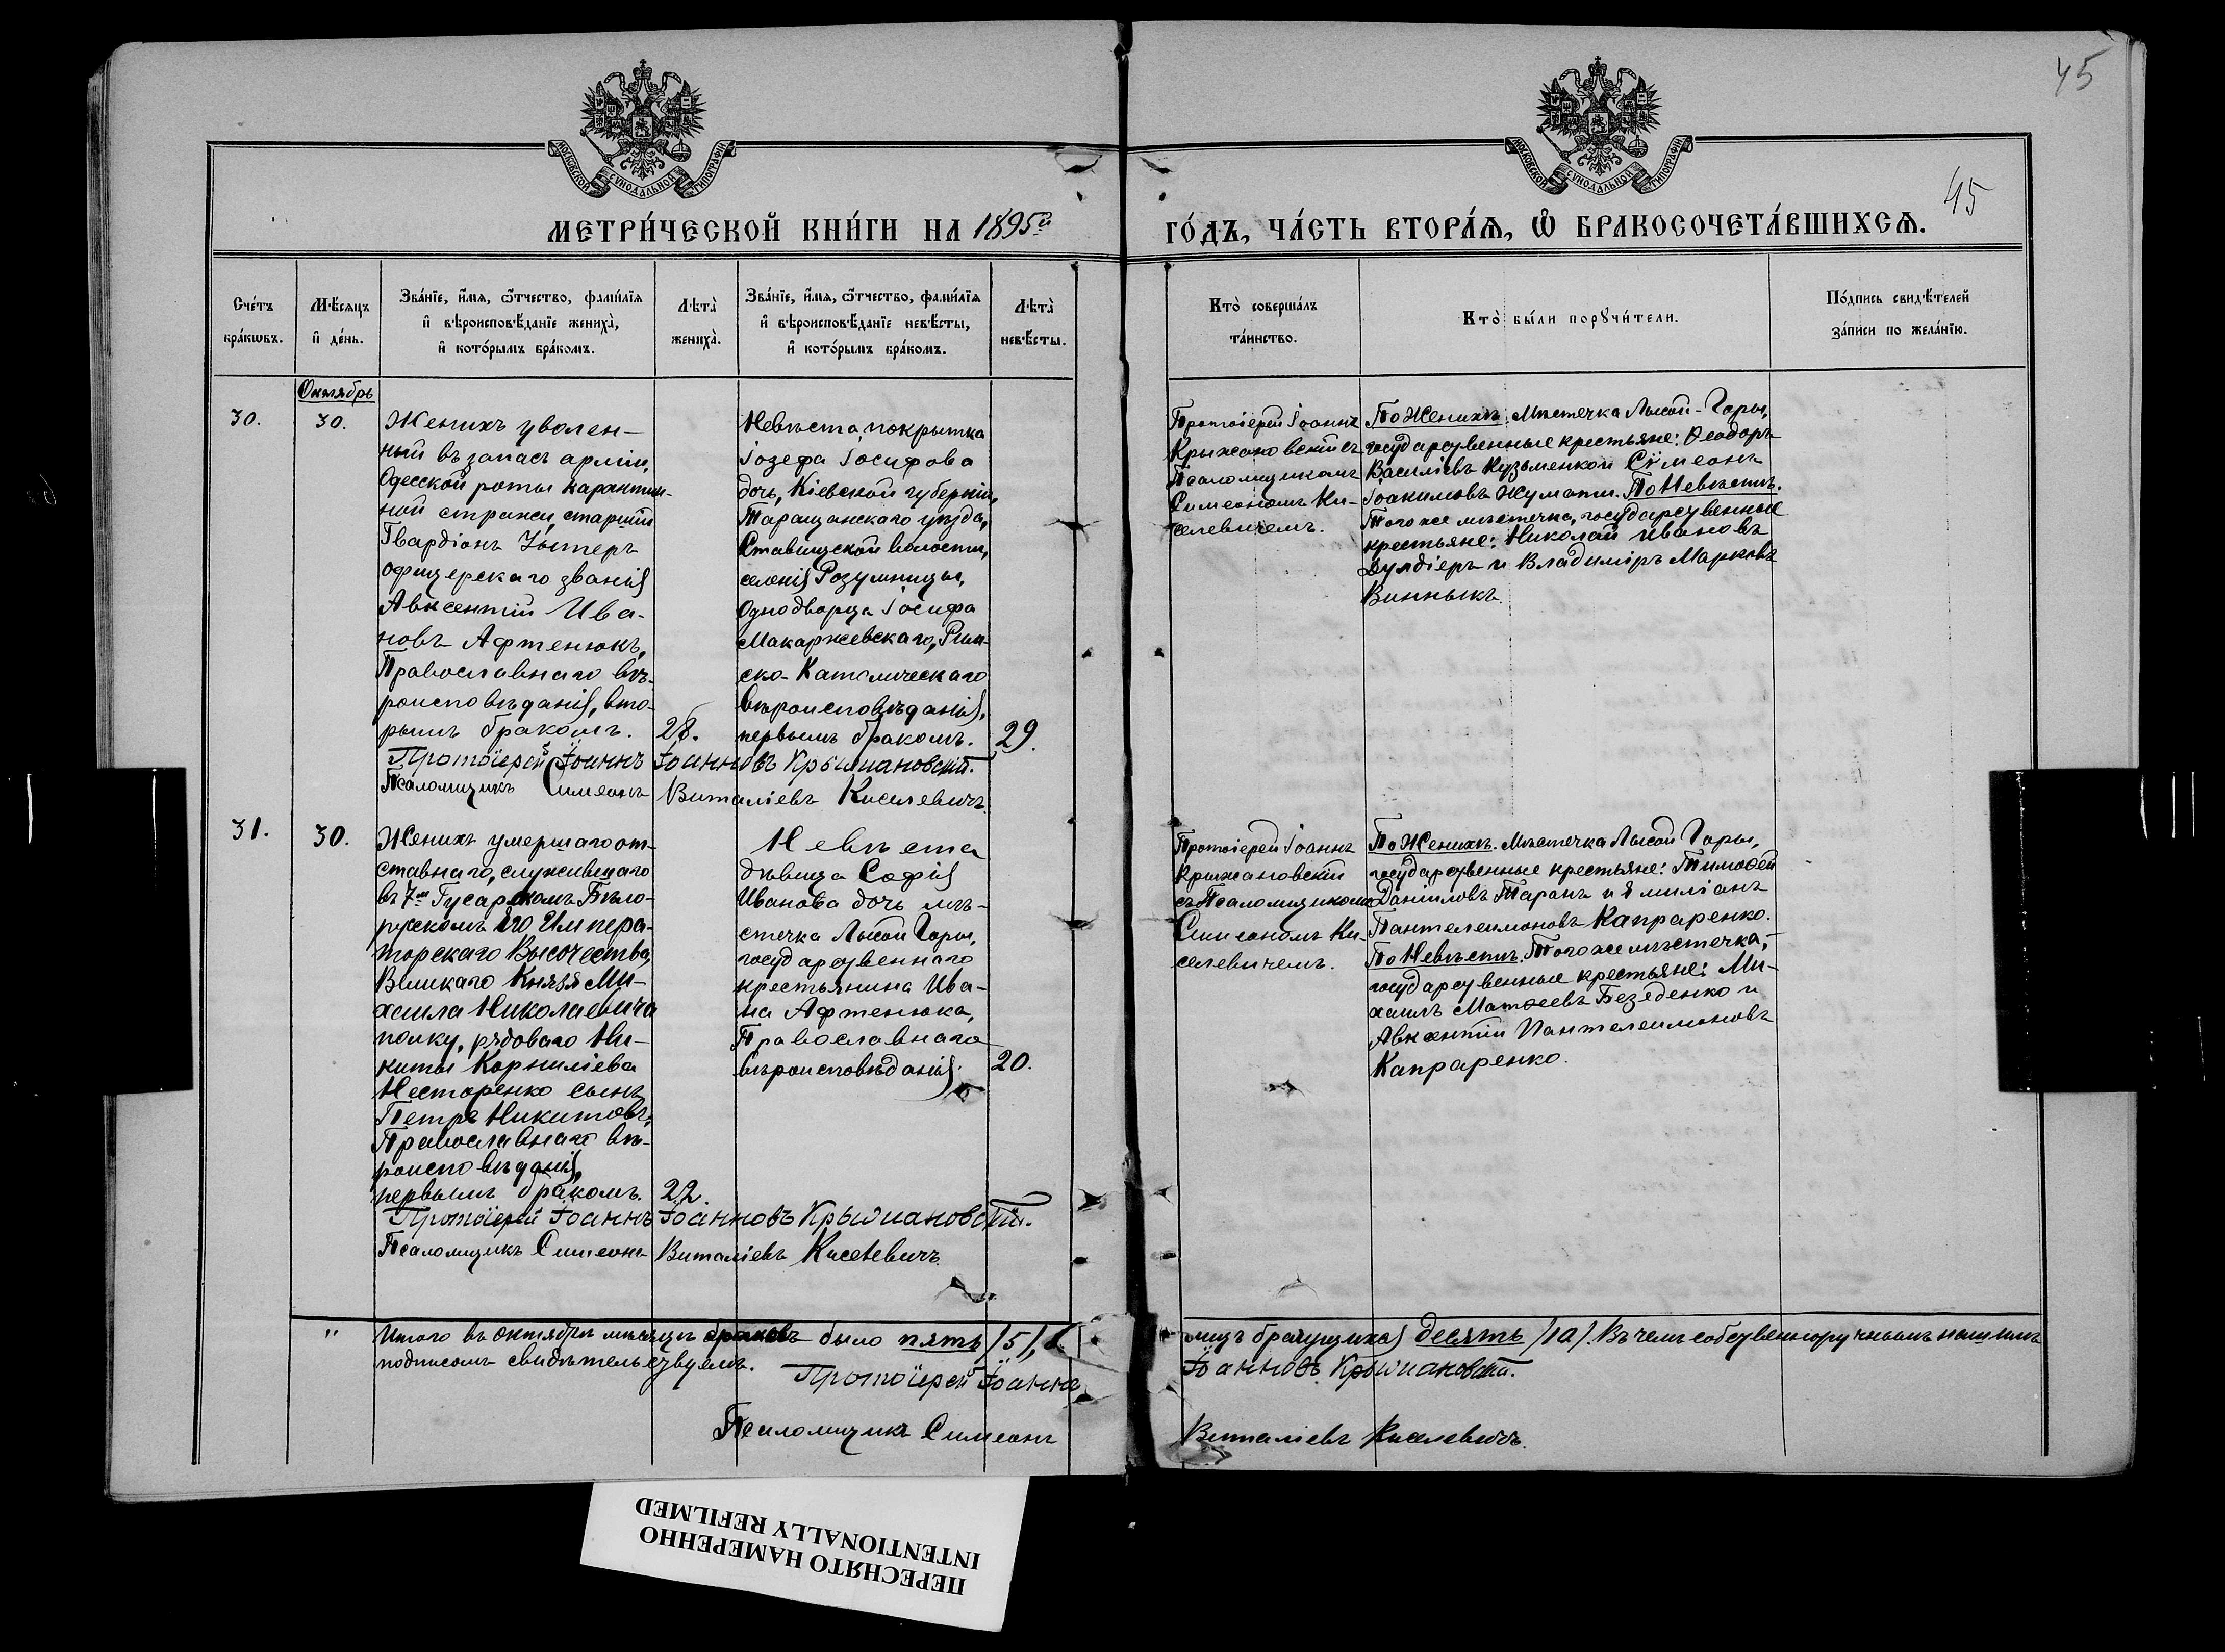 45
МОСКОВСКОЙ СУНОДАЛЬНОЙ ТИПОГРАФІИ
МОСКОВСКОЙ СУНОДАЛЬНОЙ ТИПОГРАФІИ
45
МЕТРИ́ЧЕСКОЙ КНИ́ГИ НА 1895й
ГО́ДЪ, ЧА́СТЬ ВТОРА́Ѧ, Ѽ БРАКОСОЧЕТА́ВШИХСѦ.
Сче́тъ
бра́кѡвъ.
Мѣ́сяцъ
и҆ де́нь.
Зва́нїе, и҆́мѧ, ѻ҆́тчество, фами́лїѧ
и҆ вѣроисповѣ́данїе жениха̀,
и҆ кото́рымъ бра́комъ.
Лѣта̀
жениха̀.
Зва́нїе, и҆́мѧ, ѻ҆́тчество, фами́лїѧ
и҆ вѣроисповѣ́данїе невѣ́сты,
и҆ кото́рымъ бра́комъ.
Лѣта̀
невѣ́сты.
Кто̀ соверша́лъ
та́инство.
Кто̀ бы́ли порꙋчи́тели.
По́дпись свидѣ́телей
за́писи по жела́нїю.
Октябрь
30.
30.
Женихъ уволен-
ный въ запасъ арміи,
Одесской роты карантин-
ной стражи, старшій
Гвардіонъ Унтеръ
офицерскаго званія
Авксентій Ива-
новъ Афтенюкъ,
Православнаго вѣ-
роисповѣданія, вто-
рымъ бракомъ.
28.
Невѣста, покрытка
Іозефа Іосифова
дочь, Кіевской губерніи,
Таращанскаго уѣзда,
Ставищской волости,
селенія Розумницы,
Однодворца Іосифа
Макаржевскаго, Рим-
ско-Католическаго
вѣроисповѣданія,
первымъ бракомъ.
29.
Протоіерей Іоаннъ Іоанновъ Крыжановскій.
Псаломщикъ Симеонъ Виталіевъ Киселевичъ.
Протоіерей Іоаннъ
Крыжановскій съ
Псаломщикомъ
Симеономъ Ки-
селевичемъ.
По Женихѣ: Мѣстечка Лысой-Горы,
государственные крестьяне: Ѳеодоръ
Василіевъ Кузьменко и Сѵмеонъ
Іоакимовъ Жумати. По Невѣстѣ.
Того же мѣстечка, государственные
крестьяне: Николай Ивановъ
Дулдіеръ и Владиміръ Марковъ
Винныкъ.
31.
30.
Женихъ умершаго от-
ставнаго, служившаго
въ 7м Гусарскомъ Бѣло-
русскомъ Его Импера-
торскаго Высочества,
Великаго Князя Ми-
хаила Николаевича
полку, рядоваго Ни-
киты Корниліева
Нестеренко сынъ
Петръ Никитовъ,
Православнаго вѣ-
роисповѣданія,
первымъ бракомъ.
22.
Невѣста
дѣвица Софія
Иванова дочь мѣ-
стечка Лысой Горы,
государственнаго
крестьянина Ива-
на Афтенюка,
Православнаго
вѣроисповѣданія.
20.
Протоіерей Іоаннъ Іоанновъ Крыжановскій.
Псаломщикъ Симеонъ Виталіевъ Киселевичъ.
Протоіерей Іоаннъ
Крыжановскій
съ Псаломщикомъ
Симеономъ Ки-
селевичемъ.
По Женихѣ. Мѣстечка Лысой Горы,
государственные крестьяне: Тимоѳей
Даніиловъ Таранъ и Емиліанъ
Пантелеимоновъ Капраренко.
По Невѣстѣ. Того же мѣстечка,
государственные крестьяне: Ми-
хаилъ Матѳеевъ Безеденко и
Авксентій Пантелеимоновъ
Капраренко.
" Итого въ октябрѣ мѣсяцѣ браковъ было пять /5/, лицъ брачущихся десять /10/. Въ чемъ собственноручнымъ нашимъ
подписомъ свидѣтельствуемъ. Протоіерей Іоаннъ Іоанновъ Крыжановскій.
Псаломщикъ Симеонъ Виталіевъ Киселевичъ.
ПЕРЕСНЯТО НАМЕРЕННО
INTENTIONALLY REFILMED